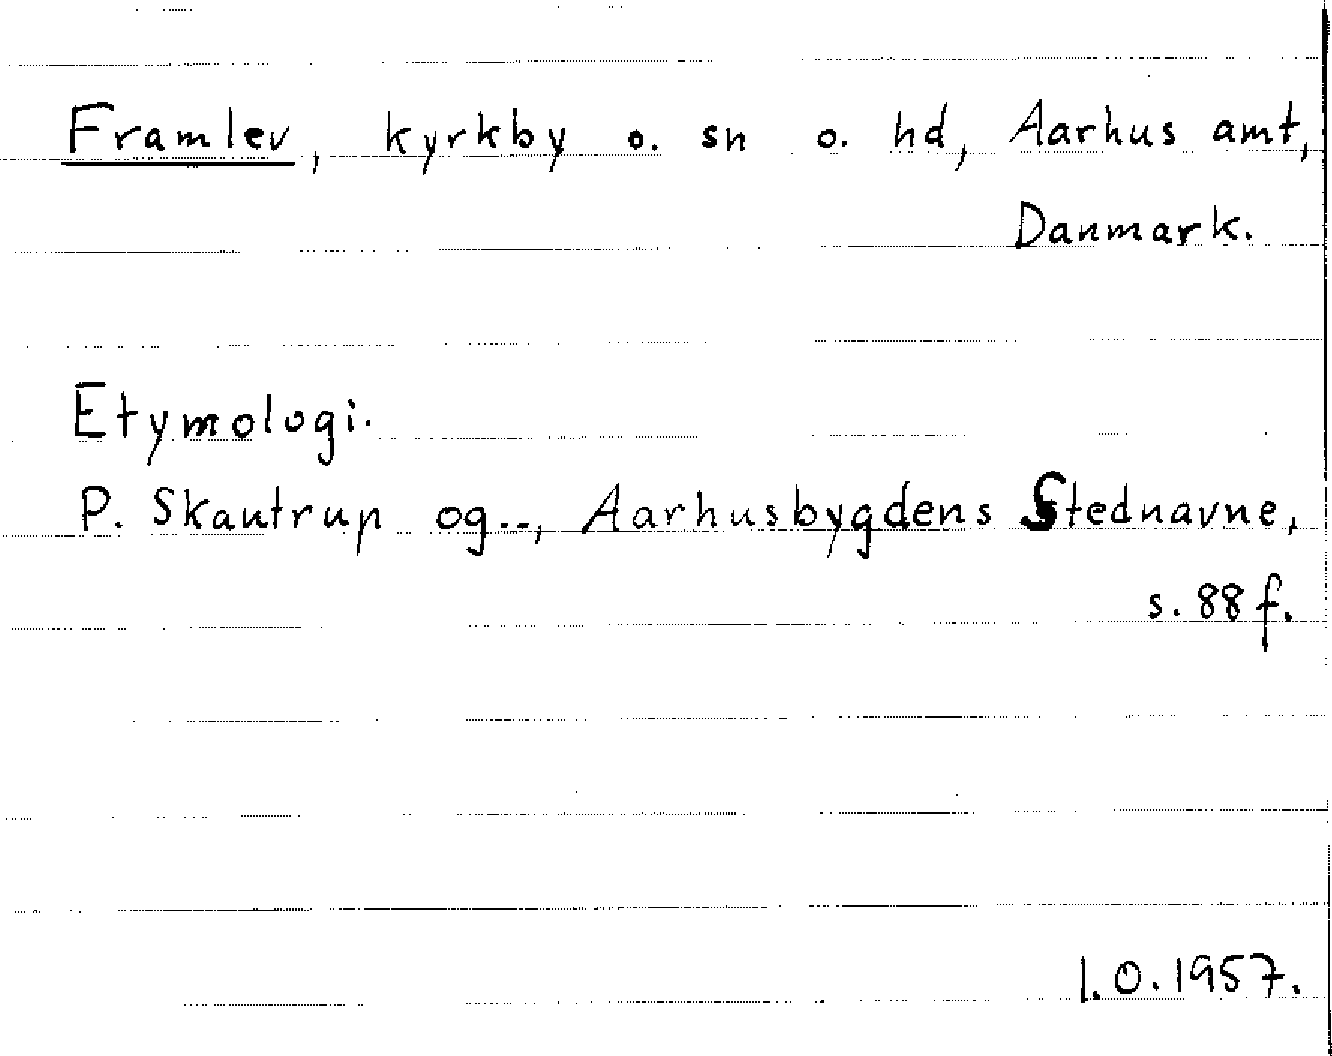 Framlev, kyrkby o. sn o. hd, Aarhus amt,
Danmark.
Etymologi.
P. Skautrup og.., Aarhusbygdens Stednavne,
s. 88 f.
l.O.1957.